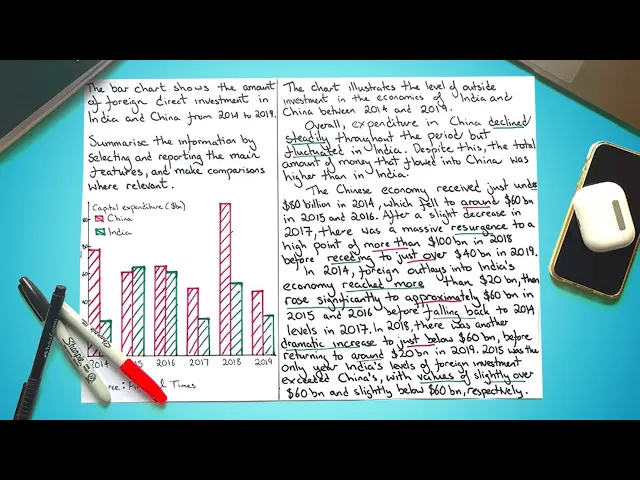 The bar chart shows the amount
of foreign direct investment in
India and China from 2014 to 2019.
Summarise the information by
selecting and reporting the main
features, and make comparisons
where relevant.
Capital expenditure ($bn)
China
India
2014
15
2016
2017
2018
2019
Times
The chart illustrates the level of outside
investment in the economies of India and
China between 2014 and 2019.
Overall, expenditure in China declined
steadily throughout the period but
fluctuated in India. Despite this, the total
amount of money that flowed into China was
higher than in India.
The Chinese economy received just under
$80 billion in 2014, which fell to around $60bn
in 2015 and 2016. After a slight decrease in
2017, there was a massive resurgence to a
high point of more than $100bn in 2018
before receding to just over $40bn in 2019.
In 2014, foreign outlays into India's
economy reached more than $20bn, then
rose significantly to approximately $60bn in
2015 and 2016 before falling back to 2014
levels in 2017. In 2018, there was another
dramatic increase to just below $60bn, before
returning to around $20bn in 2019. 2015 was the
only year India's levels of foreign investment
exceeded China's, with values of slightly over
$60bn and slightly below $60bn, respectively.
Sharpie